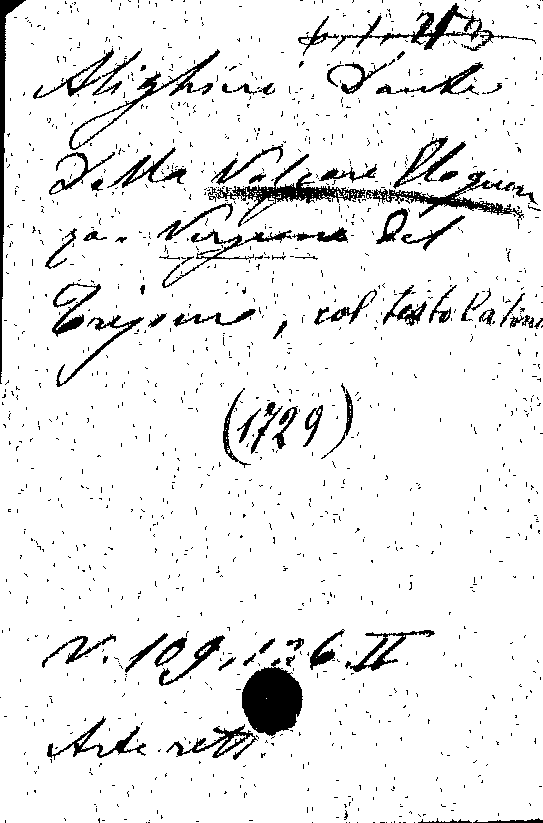 Alighieri Dante
Della Volgare Eloquen
za. Versione del
Trissino, col testo latino
(1729)
V. 109, 136 II
Arte rett.